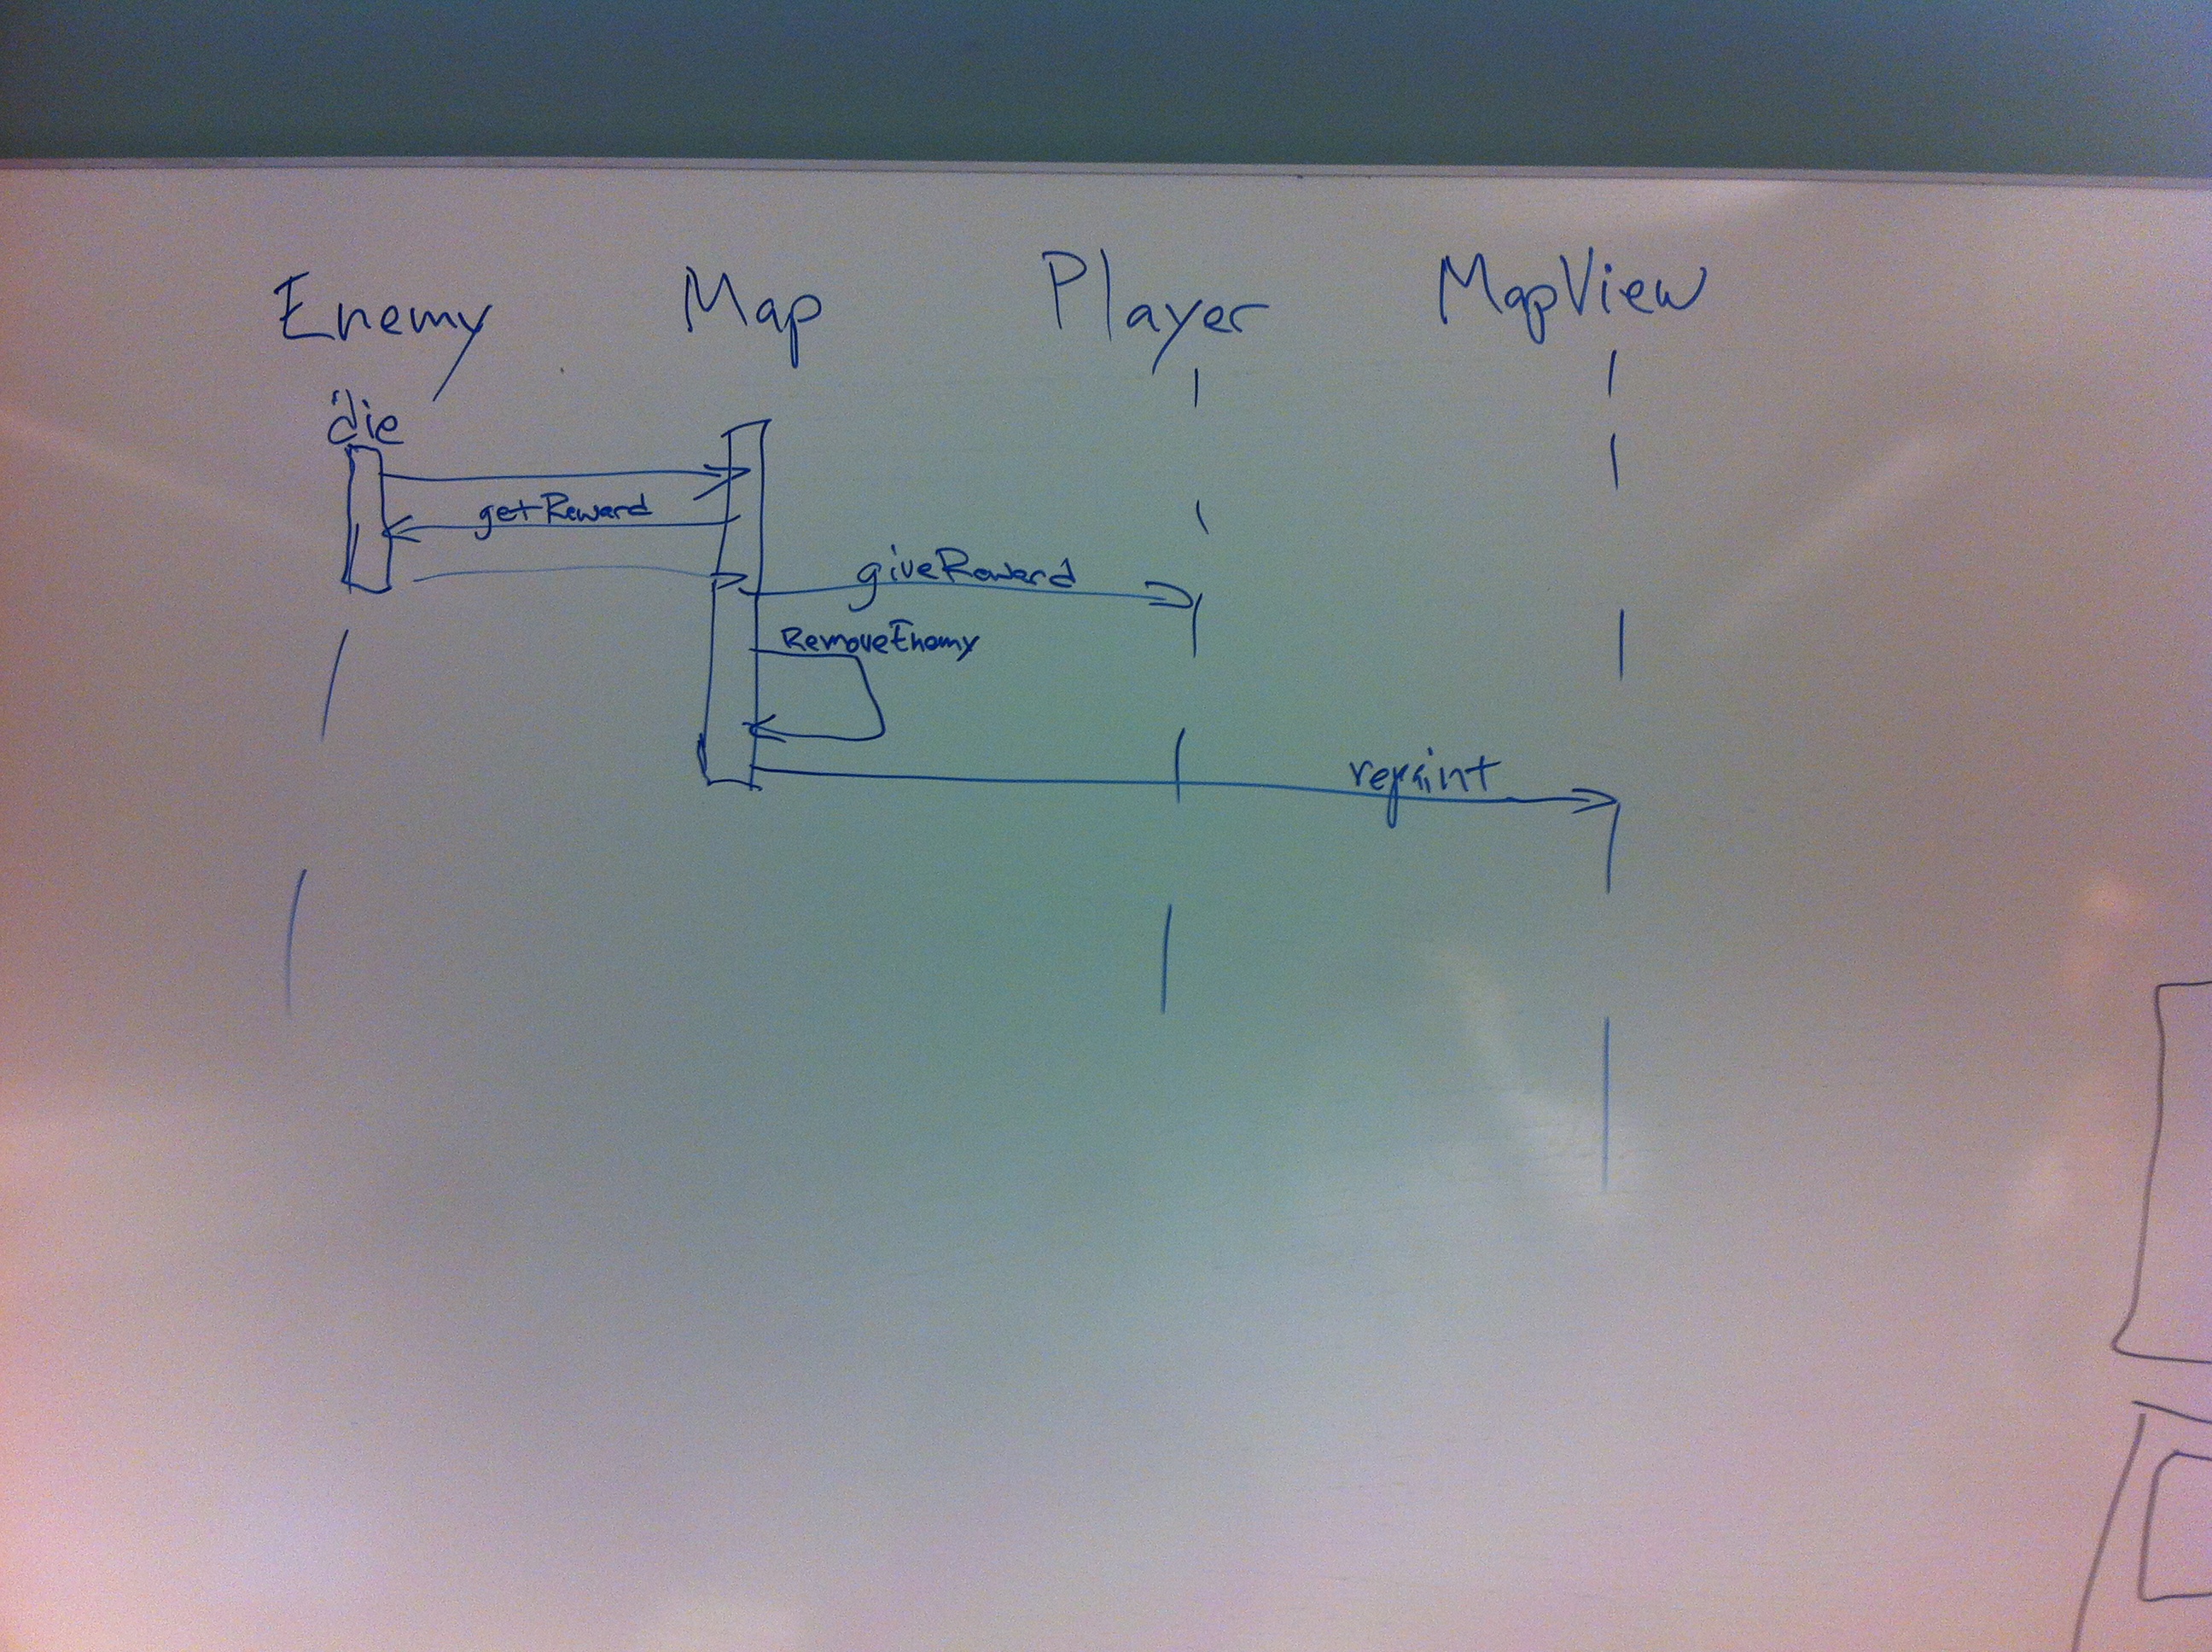 Enemy Map Player MapView
die
getReward
giveReward
RemoveEnemy
repaint